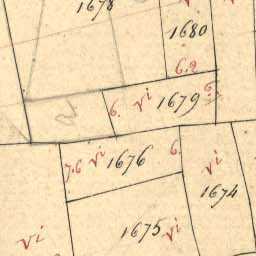 1678
1680
6.2
6. vi 1679 6.
7.6 vi 1676 6
vi 1674
vi 1675 vi